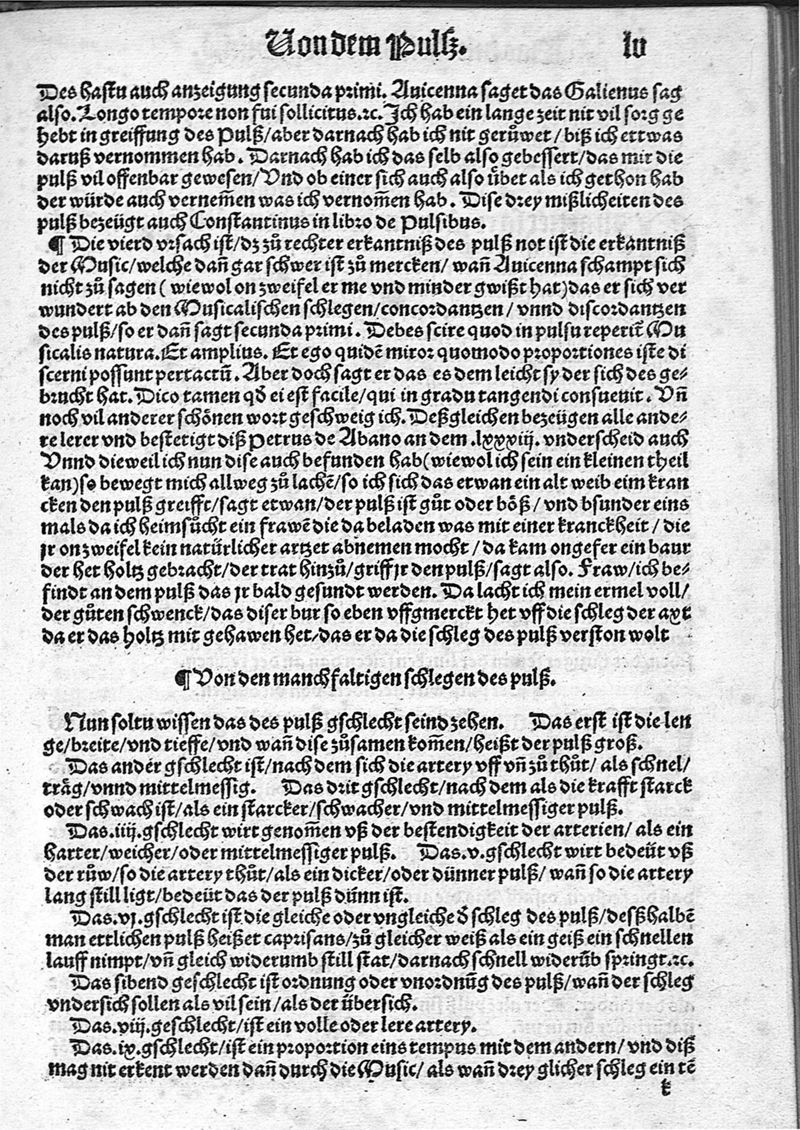 Von dem Pulsz. lv
Des hastu auch anzeigung secunda primi. Auicenna saget das Galienus sag
also. Longo tempore non fui sollicitus.⁊c. Ich hab ein lange zeit nit vil sorg ge
hebt in greiffung des Pulß/aber darnach hab ich nit gerůwet/ biß ich ettwas
daruß vernommen hab. Darnach hab ich das selb also gebessert/das mir die
pulß vil offenbar gewesen/Vnd ob einer sich auch also uͤbet als ich gethon hab
der würde auch vernem̄en was ich vernom̄en hab. Dise drey mißlicheiten des
pulß bezeügt auch Constantinus in libro de Pulsibus.
¶ Die vierd vrsach ist/dz zů rechter erkantniß des pulß not ist die erkantniß
der Music/welche dañ gar schwer ist zů mercken/ wañ Auicenna schampt sich
nicht zů sagen ( wiewol on zweifel er me vnd minder gwißt hat)das er sich ver
wundert ab den Musicalischen schlegen/concordantzen/ vnnd discordantzen
des pulß/so er dañ sagt secunda primi. Debes scire quod in pulsu reperit̄ Mu
sicalis natura. Et amplius. Et ego quidē miror quomodo proportiones iste di
scerni possunt per tactū. Aber doch sagt er das es dem leicht sy der sich des ge⸗
brucht hat. Dico tamen qđ ei est facile/qui in gradu tangendi consueuit. Vñ
noch vil anderer schönen wort geschweig ich. Deßgleichen bezeügen alle ande⸗
re lerer vnd bestetigt diß Petrus de Abano an dem .lxxxiij. vnderscheid auch
Vnnd dieweil ich nun dise auch befunden hab(wiewol ich sein ein kleinen theil
kan)so bewegt mich allweg zů lachē/so ich sich das etwan ein alt weib eim kran
cken den pulß greifft/sagt etwan/der pulß ist gůt oder böß/ vnd bsunder eins
mals da ich heimsůcht ein frawē die da beladen was mit einer kranckheit/ die
jr on zweifel kein natürlicher artzet abnemen mocht/ da kam ongefer ein baur
der het holtz gebracht/der trat hinzů/griff jr den pulß/sagt also. Fraw/ich be⸗
findt an dem pulß das jr bald gesundt werden. Da lacht ich mein ermel voll/
der gůten schwenck/das diser bur so eben vffgmerckt het vff die schleg der axt
da er das holtz mit gehawen het/das er da die schleg des pulß verston wolt
¶ Von den manchfaltigen schlegen des pulß.
Nun soltu wissen das des pulß gschlecht seind zehen. Das erst ist die len
ge/breite/vnd tieffe/vnd wañ dise zůsamen kom̄en/heißt der pulß groß.
Das ander gschlecht ist/nach dem sich die artery vff vñ zů thůt/ als schnel/
träg/vnnd mittelmessig. Das drit gschlecht/nach dem als die krafft starck
oder schwach ist/als ein starcker/schwacher/vnd mittelmessiger pulß.
Das.iiij.gschlecht wirt genom̄en vß der bestendigkeit der arterien/ als ein
harter/weicher/oder mittelmessiger pulß. Das.v.gschlecht wirt bedeüt vß
der růw/so die artery thůt/als ein dicker/oder dünner pulß/ wañ so die artery
lang still ligt/bedeüt das der pulß dünn ist.
Das.vj.gschlecht ist die gleiche oder vngleiche đ schleg des pulß/deßhalbē
man ettlichen pulß heißet caprisans/zů gleicher weiß als ein geiß ein schnellen
lauff nimpt/vñ gleich widerumb still stat/darnach schnell widerūb springt.⁊c.
Das sibend geschlecht ist ordnung oder vnordnūg des pulß/wañ der schleg
vndersich sollen als vil sein/als der übersich.
Das.viij.geschlecht/ist ein volle oder lere artery.
Das.ix.gschlecht/ist ein proportion eins tempus mit dem andern/ vnd diß
mag nit erkent werden dañ durch die Music/ als wañ drey glicher schleg ein tē
k